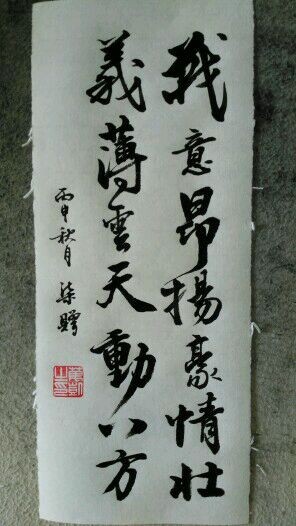 戰意昂揚豪情壯
義薄雲天動八方
丙申秋月